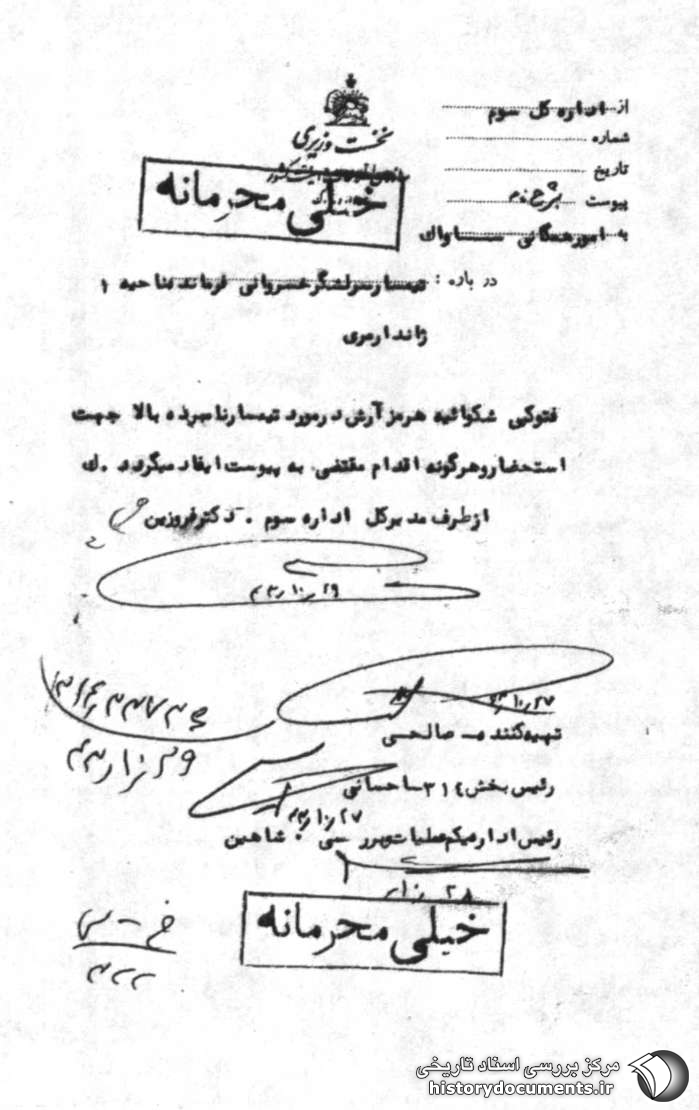 از اداره کل سوم
نخست وزیری
شماره
تاریخ
پیوست
خیلی محرمانه
به امور همگانی ساواک
در باره : تیمسار سرلشگر خسروانی فرمانده ناحیه ۱
ژاندارمری
فتوکپی شکوائیه هرمز آرش در مورد تیمسار نامبرده بالا جهت
استحضار و هرگونه اقدام مقتضی به پیوست ایفاد میگردد . ك
از طرف مدیر کل اداره سوم . دکتر فروزین
۴۳/۱۰/۲۹
۴۳/۱۰/۲۷
تهیه کننده صالحی
رئیس بخش ۳۱٤ احسانی
۴۳/۱۰/۲۷
رئیس اداره یکم عملیات و بررسی . شاهین
خیلی محرمانه
مرکز بررسی اسناد تاریخی
historydocuments.ir